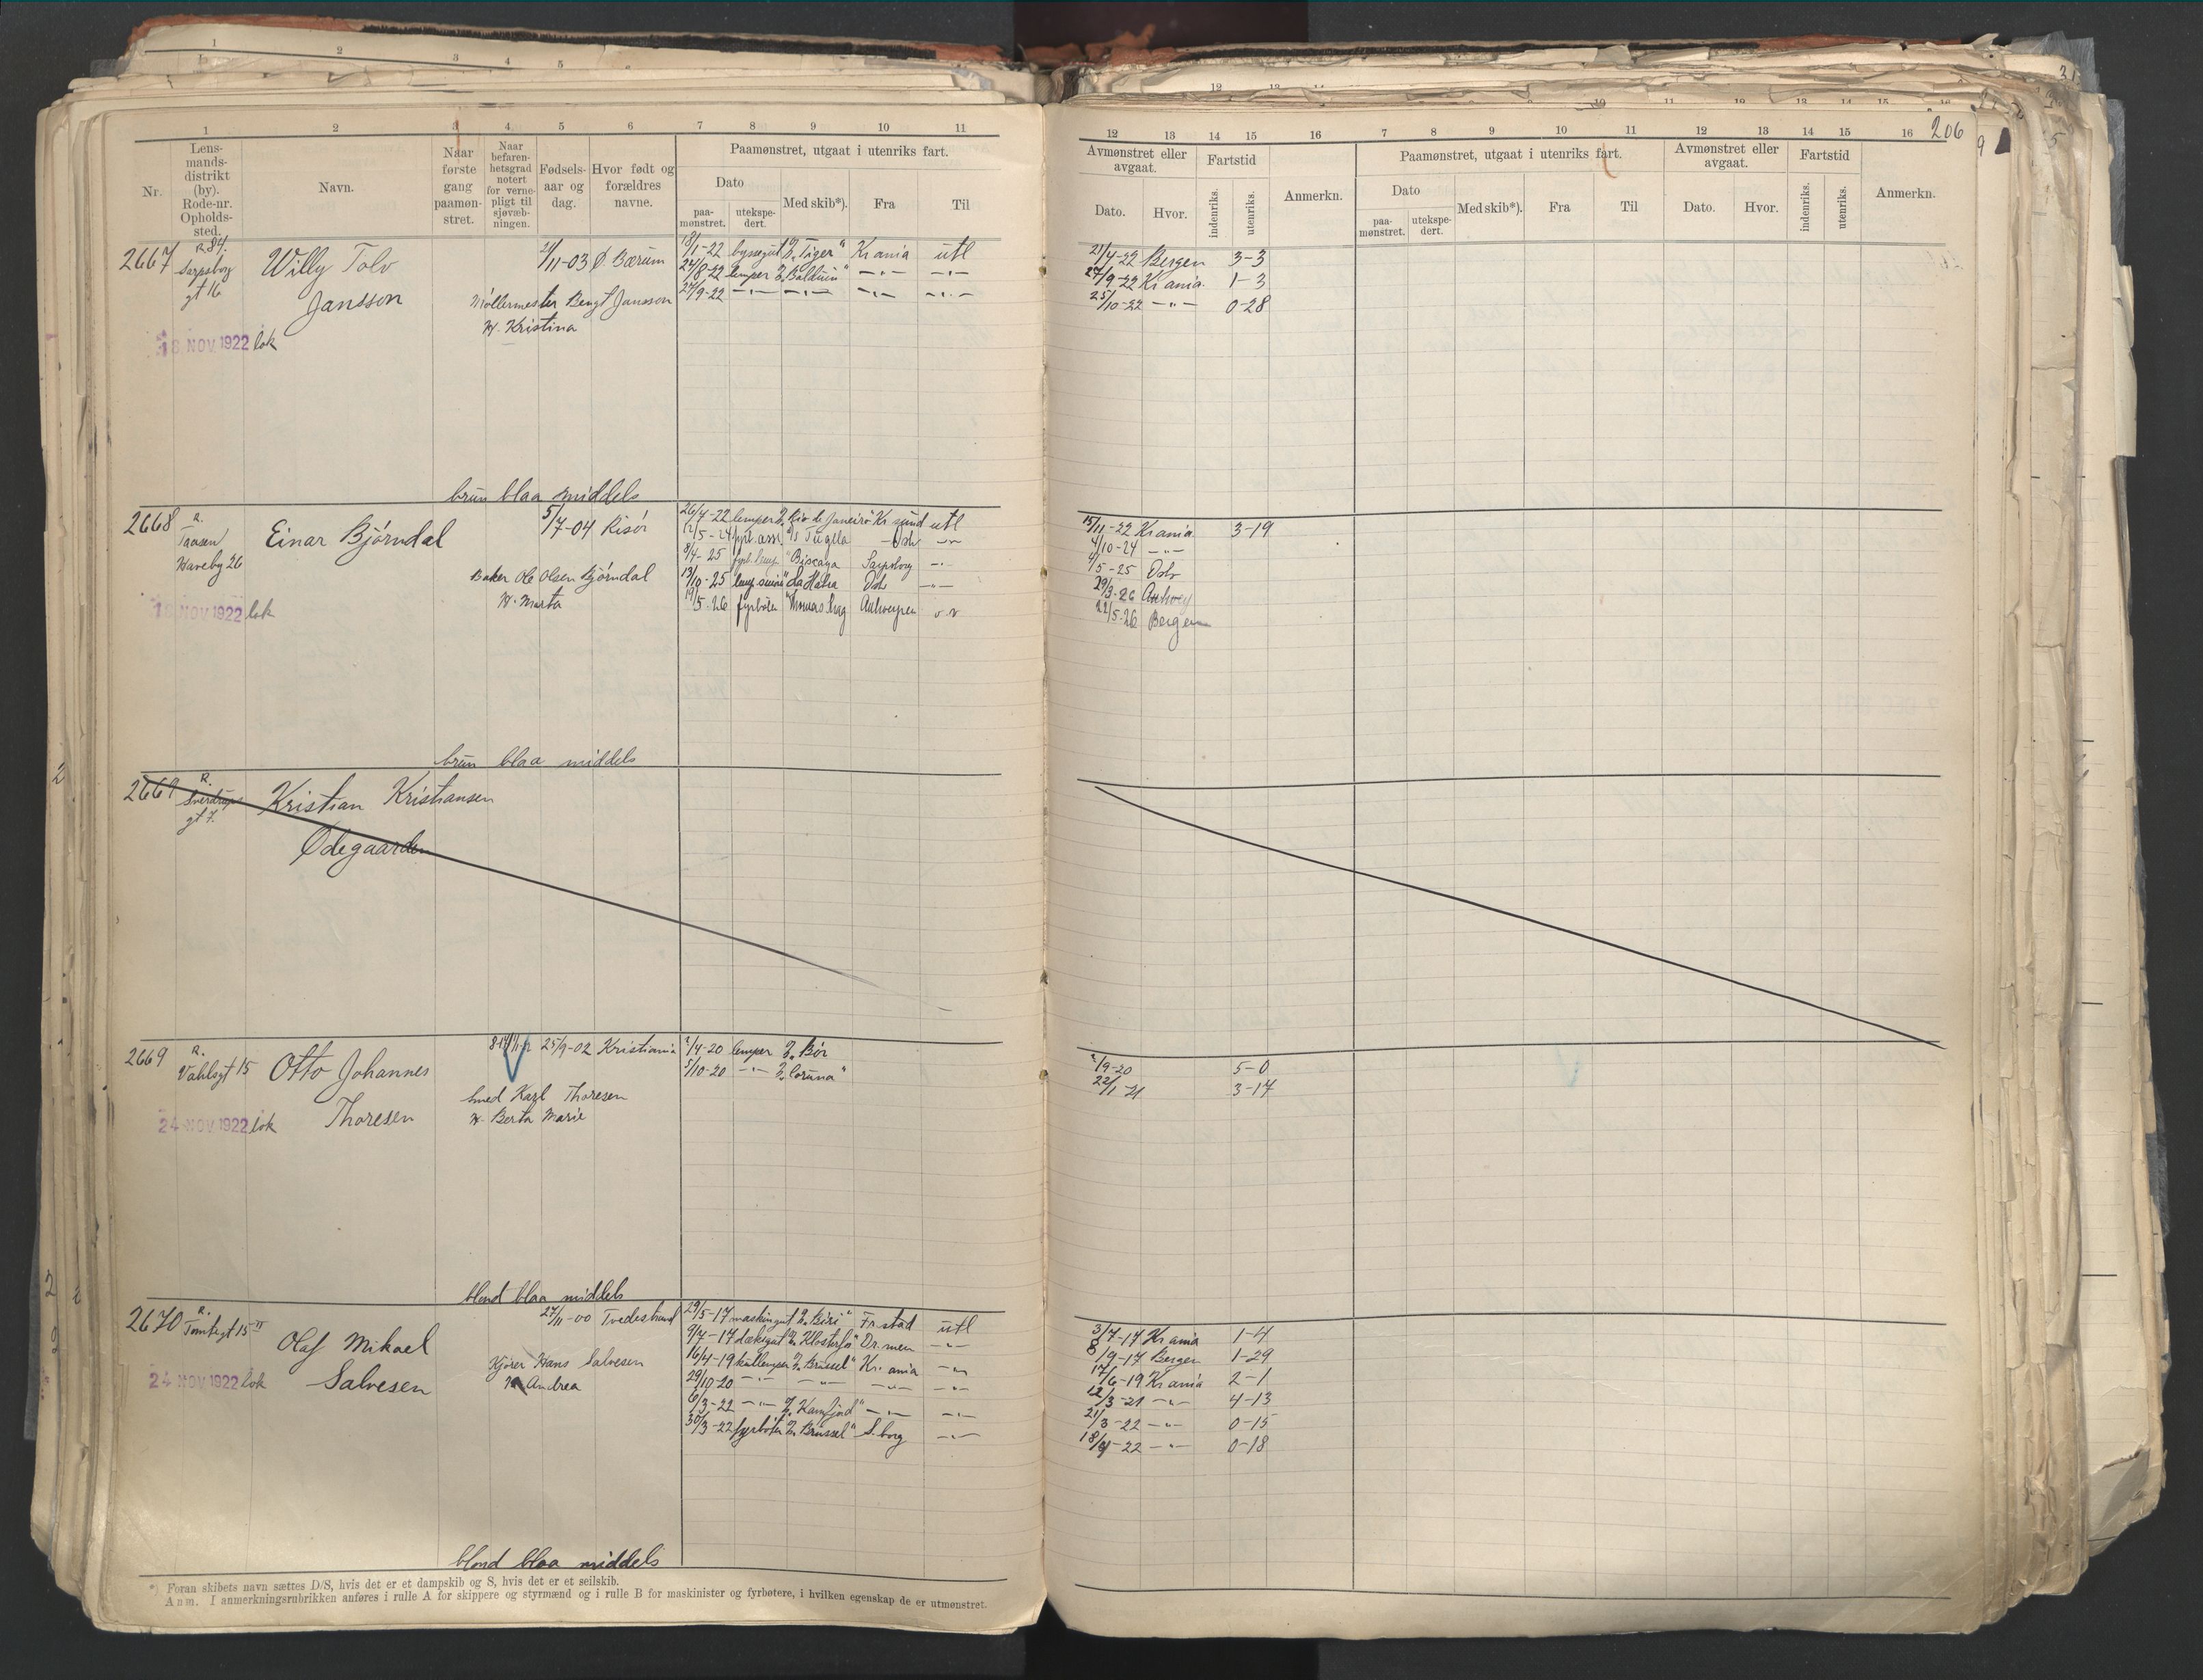 206
1 2 3 4 5 6 7 8 9 10 11
Nr.
Lens-
mands-
distrikt
(by).
Rode-nr.
Opholds-
sted.
Navn.
Naar
første
gang
paamøn-
stret.
Naar
befaren-
hetsgrad
notert
for verne-
pligt til
sjøvæb-
ningen.
Fødsels-
aar og
dag.
Hvor født og
forældres
navne.
Paamønstret, utgaat i utenriks fart.
Dato
paa-
mønstret.
utekspe-
dert.
Med skib*).
Fra
Til
12 13 14 15 16 7 8 9 10 11 12 13 14 15 16
Avmønstret eller
avgaat.
Dato.
Hvor.
Fartstid
indenriks.
utenriks.
Anmerkn.
Paamønstret, utgaat i utenriks fart.
Dato
paa-
mønstret.
utekspe-
dert.
Med skib*).
Fra
Til
Avmønstret eller
avgaat.
Dato.
Hvor.
Fartstid
indenriks.
utenriks.
Anmerkn.
2667
R 84.
Sarpsborg
gt 16
Willy Tolv
Jansson
18 NOV. 1922 lok
/11-03 Ø. Bærum
Møllermester Bengt Jansson
H. Kristina
18/1-22 byssegut D/S "Tiger" Kr ania utl
24/8-22 lemper D/S "Balduin" -"- -"-
27/9-22 -"- -"- -"- -"-
21/4-22 Bergen 3-3
27/9-22 Kr ania 1-3
25/10-22 -"- 0-28
brun blaa middels
2668
R.
Taasen
Haveby 26
Einar Bjørndal
18 NOV 1922 lok
5/7-04 Risør
Baker Ole Olsen Bjørndal
H. Marta
26/7-22 lemper D/S "Rio de Janeiro" Kr sund utl
12/5-24 D/S Tugela Oslo -"-
8/4-25 "Biscaya Sarpsborg -"-
13/10-25 "La Habra Oslo -"-
19/5-26 fyrbøter "Thomas Krag Antwerpen
15/11-22 Kr ania 3-19
4/10-24 -"-
4/5-25 Oslo
29/3-26 Antwep
22/5-26 Bergen
brun blaa middels
2669
R.
Sverdrups
gt 7.
Kristian Kristiansen
Ødegaarden
2669
R.
Vahlsgt 15
Otto Johannes
Thoresen
24 NOV 1922 lok
25/9-02 Kristiania
Smed Karl Thoresen
H. Berta Marie
2/4-20 lemper D/S "Bør
5/10-20 -"- D/S "Coruna"
2/9-20 5-0
22/1-21 3-17
blond blaa middels
2670
R.
Tomtegt 15 II
Olaf Mikael
Salvesen
24 NOV 1922 lok
27/11-00 Tvedestrand
Kjører Hans Salvesen
H Andrea
29/5-17 maskingut D/S "Biri" Fr. stad utl
9/7-17 dæksgut D/S "Klosterfos" Dr. men -"-
16/4-19 kullemper D/S "Brüssel" Kr. ania -"-
29/10-20 -"- -"- -"- -"-
6/3-22 -"- D/S "Kamfjord" -"- -"-
30/3-22 fyrbøter D/S "Brüssel" S. borg -"-
3/7-17 Kr ania 1-4
8/9-17 Bergen 1-29
17/6-19 Kr ania 2-1
12/3-21 -"- 4-13
21/3-22 -"- 0-15
18/4-22 -"- 0-18
blond blaa middels
*) Foran skibets navn sættes D/S, hvis det er et dampskib og S, hvis det er et seilskib.
Anm. I anmerkningsrubrikken anføres i rulle A for skippere og styrmænd og i rulle B for maskinister og fyrbøtere, i hvilken egenskap de er utmønstret.